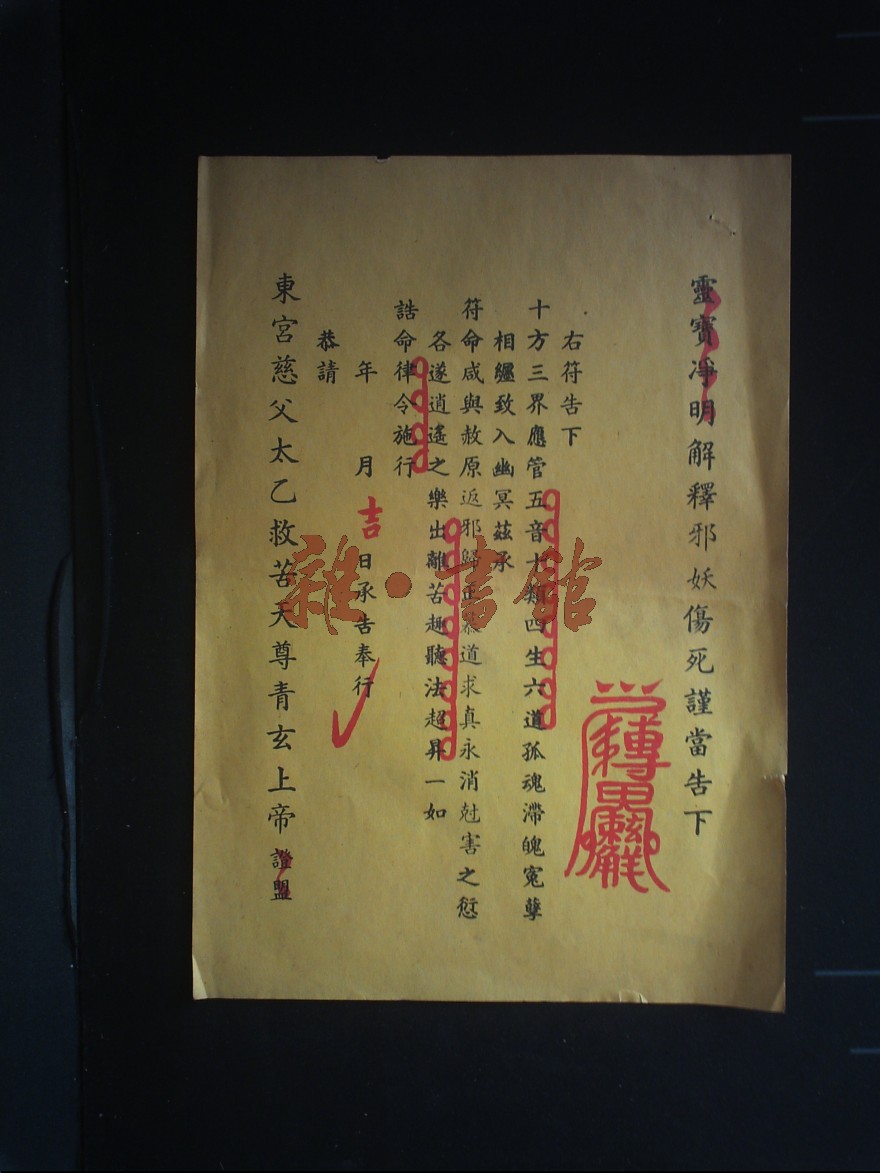 靈寶淨明解釋邪妖傷死謹當告下
右符告下
十方三界應管五音十類四生六道孤魂滯魄寃孽
相纏致入幽冥茲承
符命咸與赦原返邪歸正慕道求真永消尅害之愆
各遂逍遙之樂出離苦趣聽法超昇一如
誥命律令施行
年 月吉日承告奉行
恭請
東宮慈父太乙救苦天尊青玄上帝證盟
雜·書館